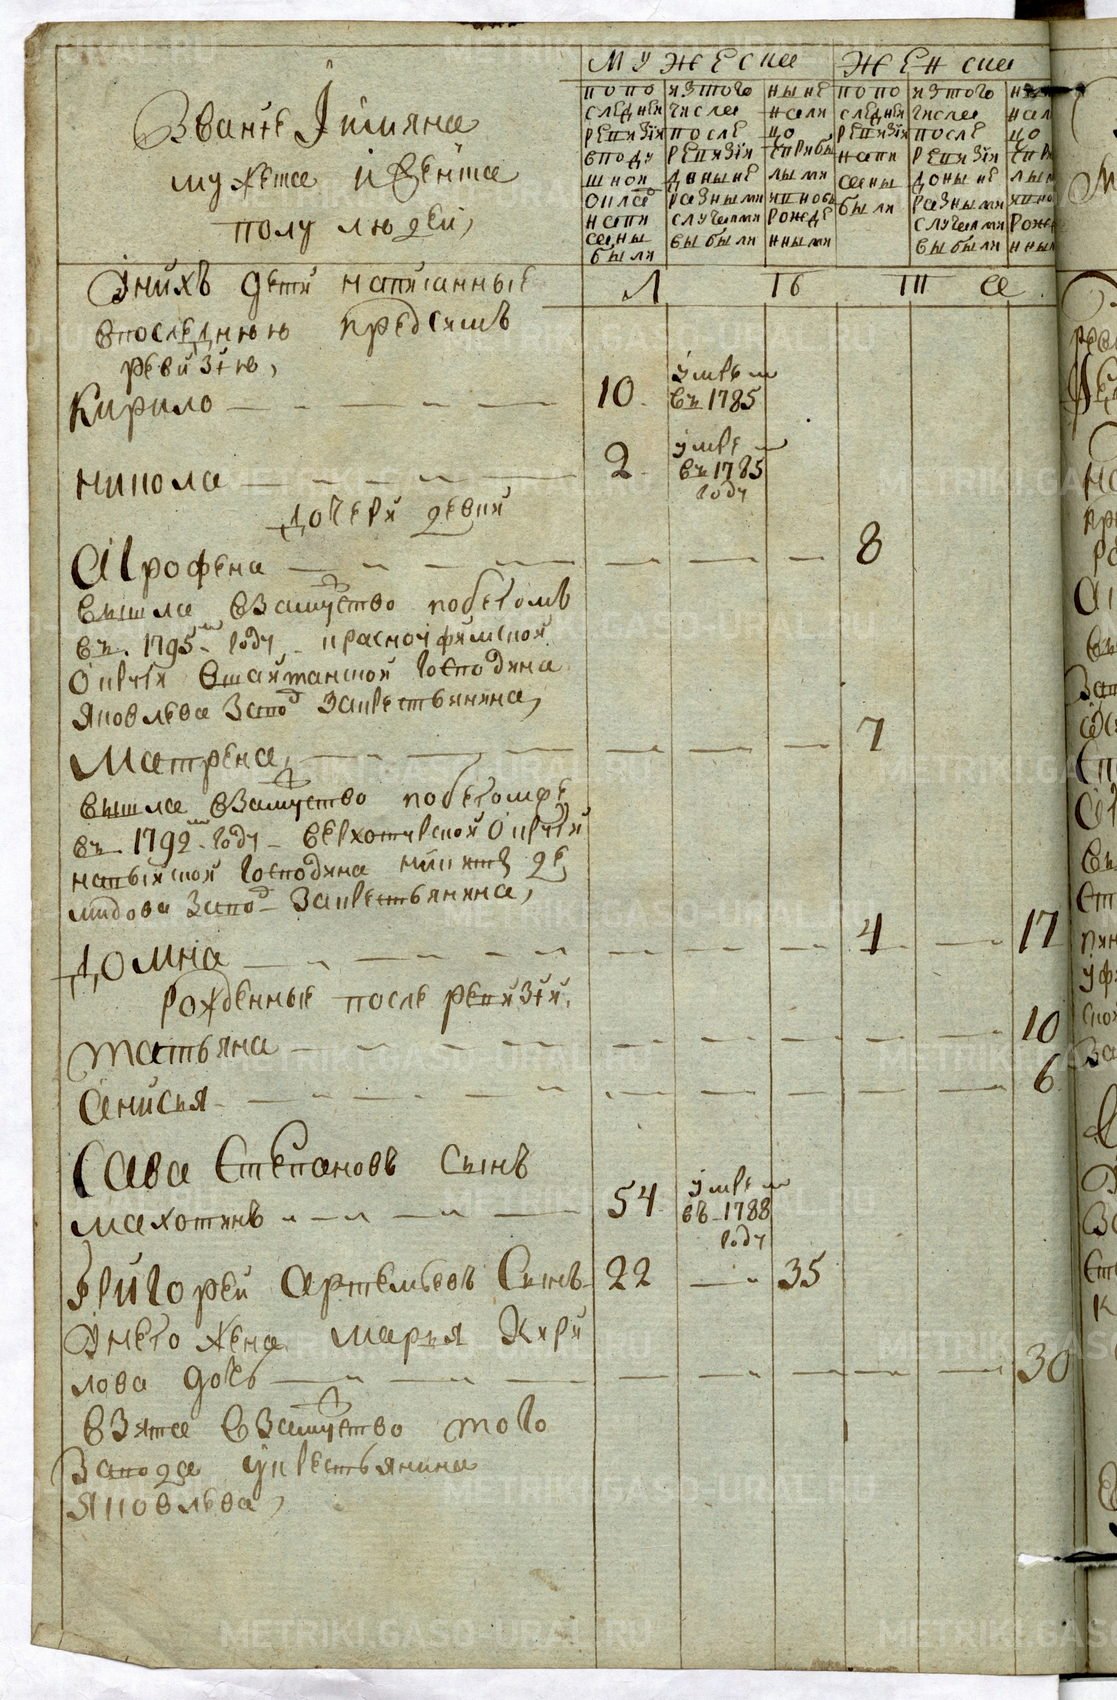 МУЖЕСКА ЖЕНСКА
Званіе Iимяна
мужеска iженска
полу людей,
по по
следней
ревизіи
вподу
шной
окла
напи
саны
были
изтого
числа
после
ревизіи
доныне
разными
случаями
выбыли
ныне
нали
цо
спрібы
лыми
ивновь
рожде
нными
по по
следней
ревизіи
напи
саны
были
изтого
числа
после
ревизіи
доныне
разными
случаями
выбыли
нали
цо
лым
рож
нным
Iнихъ дети написанные
впоследнюю предсимъ
ревизію,
Кирило 10. умре въ 1785
никола 2. умре въ 1785 году
дочери девки
Аграфена 8
вышла взамуство побегомъ
въ 1795м году красноуфимской
округи вшайтанской господина
яковлева завод закрестьянина,
Матрена, 7
вышла взамуство побегомже
въ 1792м году верхотурской округи
господина никиты де
мидова завод закрестьянина,
Домна 4 17
рожденные после ревизіи,
татьяна 10
Анисья 6
Сава Степановъ сынъ
махотинъ 54 умре въ 1788 году
Григорей Артемьевъ Сынъ 22 35
Iнего жена марья Кири
лова дочь 30
взята взамуство того
завода укрестьянина
яковлева,
METRIKI.GASO-URAL.RU